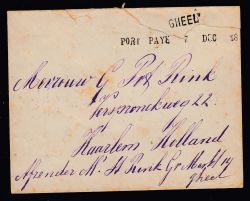 GHEEL
PORT PAYE 7 DEC 18
Mevrouw G Pot Rink
22
Haarlem Holland
Afzender Mr H Rink Gr
Gheel